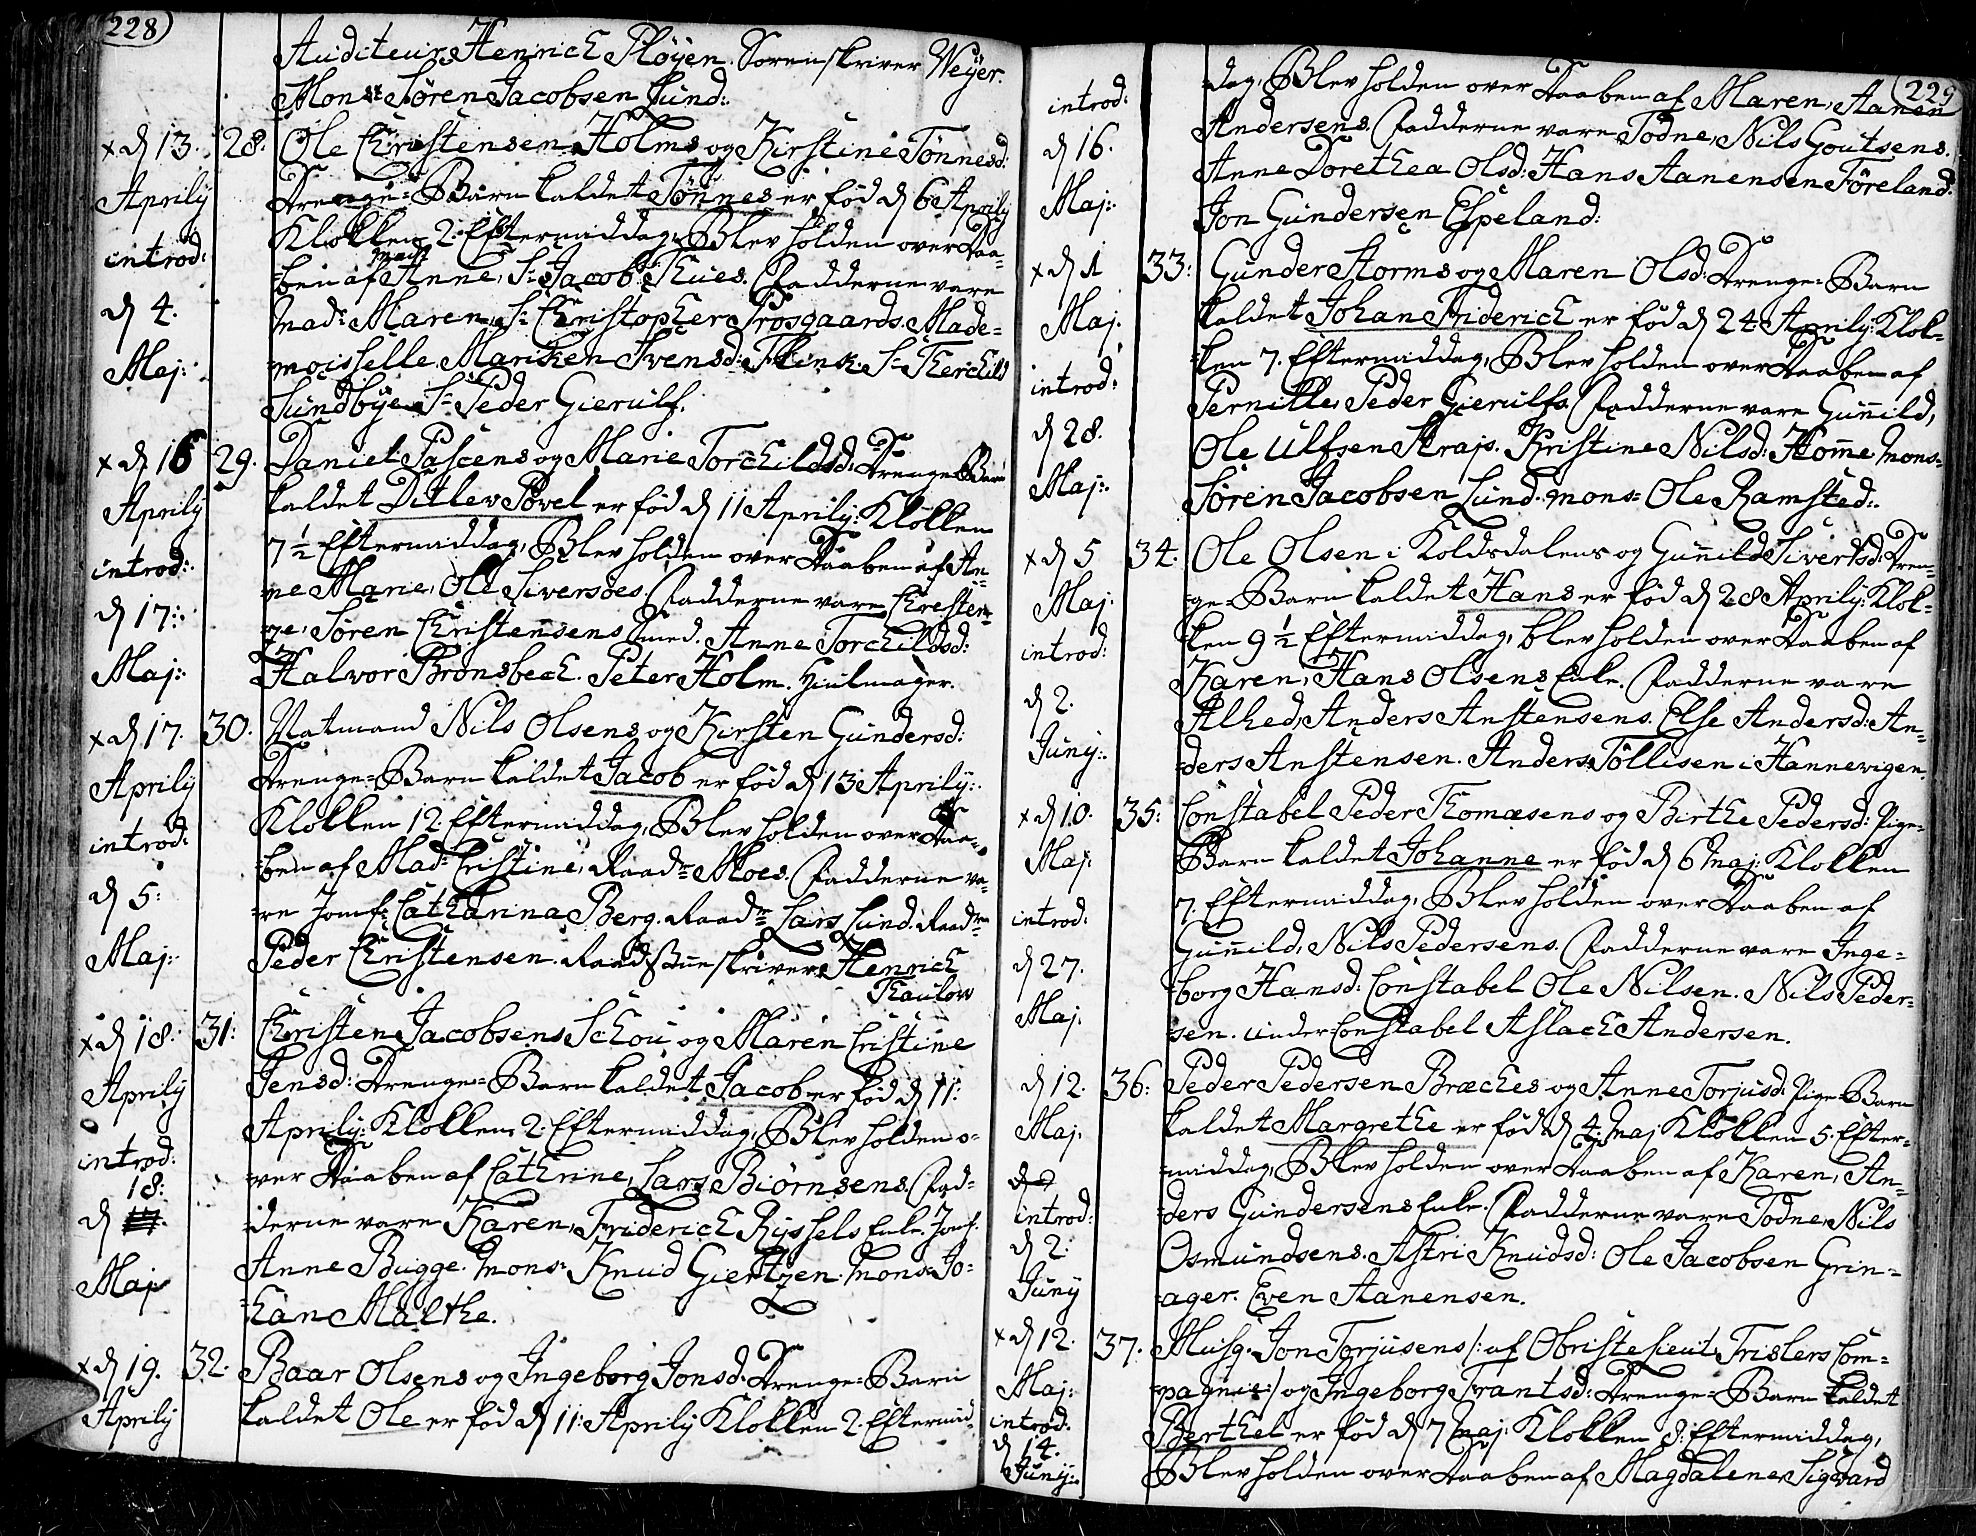 228)
Auditeur Henrich Pløyen. Sorenskriver Weyer.
Monsr Søren Jacobsen Lund:
x d 13. 28. Ole Christensen Holms og Kirstine Tønnesd:
Aprilij Drenge=Barn kaldet Tønnes er fød d 6 Aprilij
introd: Klokken 2. Eftermiddag, Blev holden over Daa=
=ben af Mad Anne, Sr Jacob Thues. Fadderne vare
d 4. Mad: Maren, Sr Christopher Prosgaards. Made=
Maj: =moisselle Mariken Svensd: Flink. Sr Therchild
Sundbye. Sr Peder Gierulf.
x d 16 29. Daniel Pascens og Marie Torchildsd: Drenge Barn
Aprilij kaldet Ditlev Povel er fød d 11 Aprilij: Klokken
introd: 7 1/2 Eftermiddag, Blev holden over Daaben af An=
d 17: =ne Marie, Ole Siversøes. Fadderne vare Christen=
=ze, Søren Christensens Smed. Anne Torchildsd:
Maj: Halvor Bronsbech. Peter Holm. Hiulmager.
x d 17. 30. Natmand Nils Olsens og Kirsten Gundersd:
Aprilij Drenge=Barn kaldet Jacob er fød d 13 Aprilij:
introd: Klokken 12. Eftermiddag, Blev holden over Daa=
=ben af Mad: Cristine, Raadm Moes. Fadderne va=
d 5: =re Jomf: Catharina Berg. Raadm Lars Lund. Raadm
Maj: Peder Christensen. Raadstueskriver Henrich
Thaulow
x d 18. 31: Christen Jacobsens Schou og Maren Cristine
Aprilij Jensd: Drenge=Barn kaldet Jacob er fød d 11:
Aprilij: Klokken 2. Eftermiddag, Blev holden o=
introd: =ver Daaben af Cathrine, Lars Biørnsens. Fad=
18:
d =derne vare Karen, Friderich Ryssels Enke. Jomf:
Maj Anne Bugge. Mons: Knud Giertzen. Mons: Jo=
=han Malthe.
x d 19. 32. Baar Olsens og Ingeborg Jonsd: Drenge=Barn
Aprilij kaldet Ole er fød d 11: Aprilij Klokken 2. Eftermid=
229
introd: dag, Blev holden over Daaben af Maren, Aanen
d 16. Andersens. Fadderne vare Todne, Nils Goutsens.
Maj: Anne Dorethea Olsd: Hans Aanensen Føreland:
Jon Gundersen Espeland:
x d 1 33: Gunder Storms og Maren Olsd: Drenge=Barn
Maj. kaldet Johan Friderich er fød d 24: Aprilij: Klok=
introd: =ken 7. Eftermiddag, Blev holden over Daaben af
Pernille, Peder Gierulfs. Fadderne vare Gunild,
d 28. Ole Ulfsen Skrajs. Kristine Nilsd: Home Mons:
Maj: Søren Jacobsen Lund. Mons: Ole Ramsted:
x d 5 34. Ole Olsen i Koldsdalens og Gunild Sivertsd: Dren=
Maj. =ge=Barn kaldet Hans er fød d 28 Aprilij: Klok=
introd: =ken 9 1/2 Eftermiddag, blev holden over Daaben af
Karen, Hans Olsens Enke. Fadderne vare
d 2. Alhed, Anders Anstensens. Else Andersd: An=
Junij: =ders Anstensen. Anders Tøllisen i Hannevigen.
x d 10. 35: Constabel Peder Thomæsens og Birthe Pedersd: Pige=
Maj: Barn kaldet Johanne er fød d 6 Maj: Klokken
introd: 7. Eftermiddag, Blev holden over Daaben af
Gunild, Nils Pedersens. Fadderne vare Inge=
d 27. =borg Hansd: Constabel Ole Nilsen. Nils Peder=
Maj. =sen. Under Constabel Aslach Andersen.
d 12. 36: Peder Pedersen Bræches og Anne Torjusd: Pige=Barn
Maj. kaldet Margrethe er fød d 4: Maj Klokken 5. Efter=
=middag, Blev holden over Daaben af Karen, An=
introd: =ders Gundersens Enke. Fadderne vare Todne, Nils
d 2: Osmundsens. Astri Knudsd: Ole Jacobsen Grin=
Junij =ager. Even Aanensen.
x d 12. 37. Musq. Jon Torjusens /: af Obristelieut Trislers Com=
Maj: =pagnie:/ og Ingeborg Trantsd: Drenge=Barn kaldet
introd. Berthel er fød d 7 Maj: Klokken 8: Eftermiddag,
d 14. Junij: Blev holden over Daaben af Magdalene, Sigvard